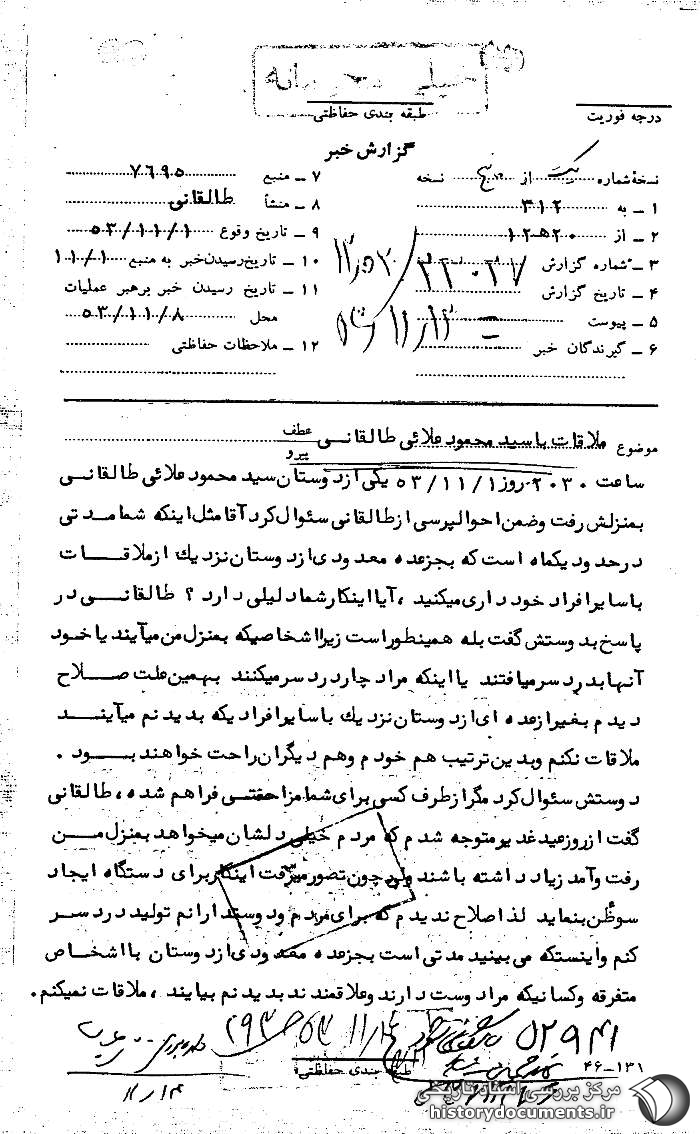 خیلی محرمانه
طبقه بندی حفاظتی
درجه فوریت
گزارش خبر
نسخهٔ شماره یک از پنج نسخه
۱ ـ به ۳۱۲
۲ ـ از ۲۰ ﻫ ۱۲
۳ ـ شماره گزارش ۲۳۰۳۷ / ۱۲
۴ ـ تاریخ گزارش
۵ ـ پیوست
۶ ـ گیرندگان خبر
۷ ـ منبع ۷۶۹۵
۸ ـ منشأ طالقانی
۹ ـ تاریخ وقوع ۵۳/۱۱/۱
۱۰ ـ تاریخ رسیدن خبر به منبع ۱۱/۱
۱۱ ـ تاریخ رسیدن خبر برهبر عملیات
محل ۵۳/۱۱/۸
۱۲ ـ ملاحظات حفاظتی
موضوع ملاقات با سید محمود علائی طالقانی عطف
پیرو
ساعت ۲۰۳۰ روز ۵۳/۱۱/۱ یکی از دوستان سید محمود علائی طالقانی
بمنزلش رفت وضمن احوالپرسی از طالقانی سئوال کرد آقا مثل اینکه شما مدتی
در حدود یکماه است که بجز عده معدودی از دوستان نزدیك از ملاقات
با سایر افراد خودداری میکنید ، آیا اینکار شما دلیلی دارد ؟ طالقانی در
پاسخ بدوستش گفت بله همینطور است زیرا اشخاصیکه بمنزل من میآیند یا خود
آنها بدردسر میافتند یا اینکه مرا دچار دردسر میکنند بهمین علت صلاح
دیدم بغیر از عده ای از دوستان نزدیك با سایر افرادیکه بدیدنم میآیند
ملاقات نکنم وبدین ترتیب هم خودم وهم دیگران راحت خواهند بود .
دوستش سئوال کرد مگر از طرف کسی برای شما مزاحمتی فراهم شده ، طالقانی
گفت از روز عید غدیر متوجه شدم که مردم خیلی دلشان میخواهد بمنزل من
رفت وآمد زیاد داشته باشند ولی چون تصور میرفت اینکار برای دستگاه ایجاد
سوظن بنماید لذا صلاح ندیدم که برای مردم ودوستدارانم تولید دردسر
کنم واینستکه می بینید مدتی است بجز عده معدودی از دوستان با اشخاص
متفرقه وکسانیکه مرا دوست دارند وعلاقمندند بدیدنم بیایند ، ملاقات نمیکنم .
۵۲۹۴۱
طبقه بندی حفاظتی
۴۶-۱۳۱
۱۱/۱۴
مرکز بررسی اسناد تاریخی
historydocuments.ir